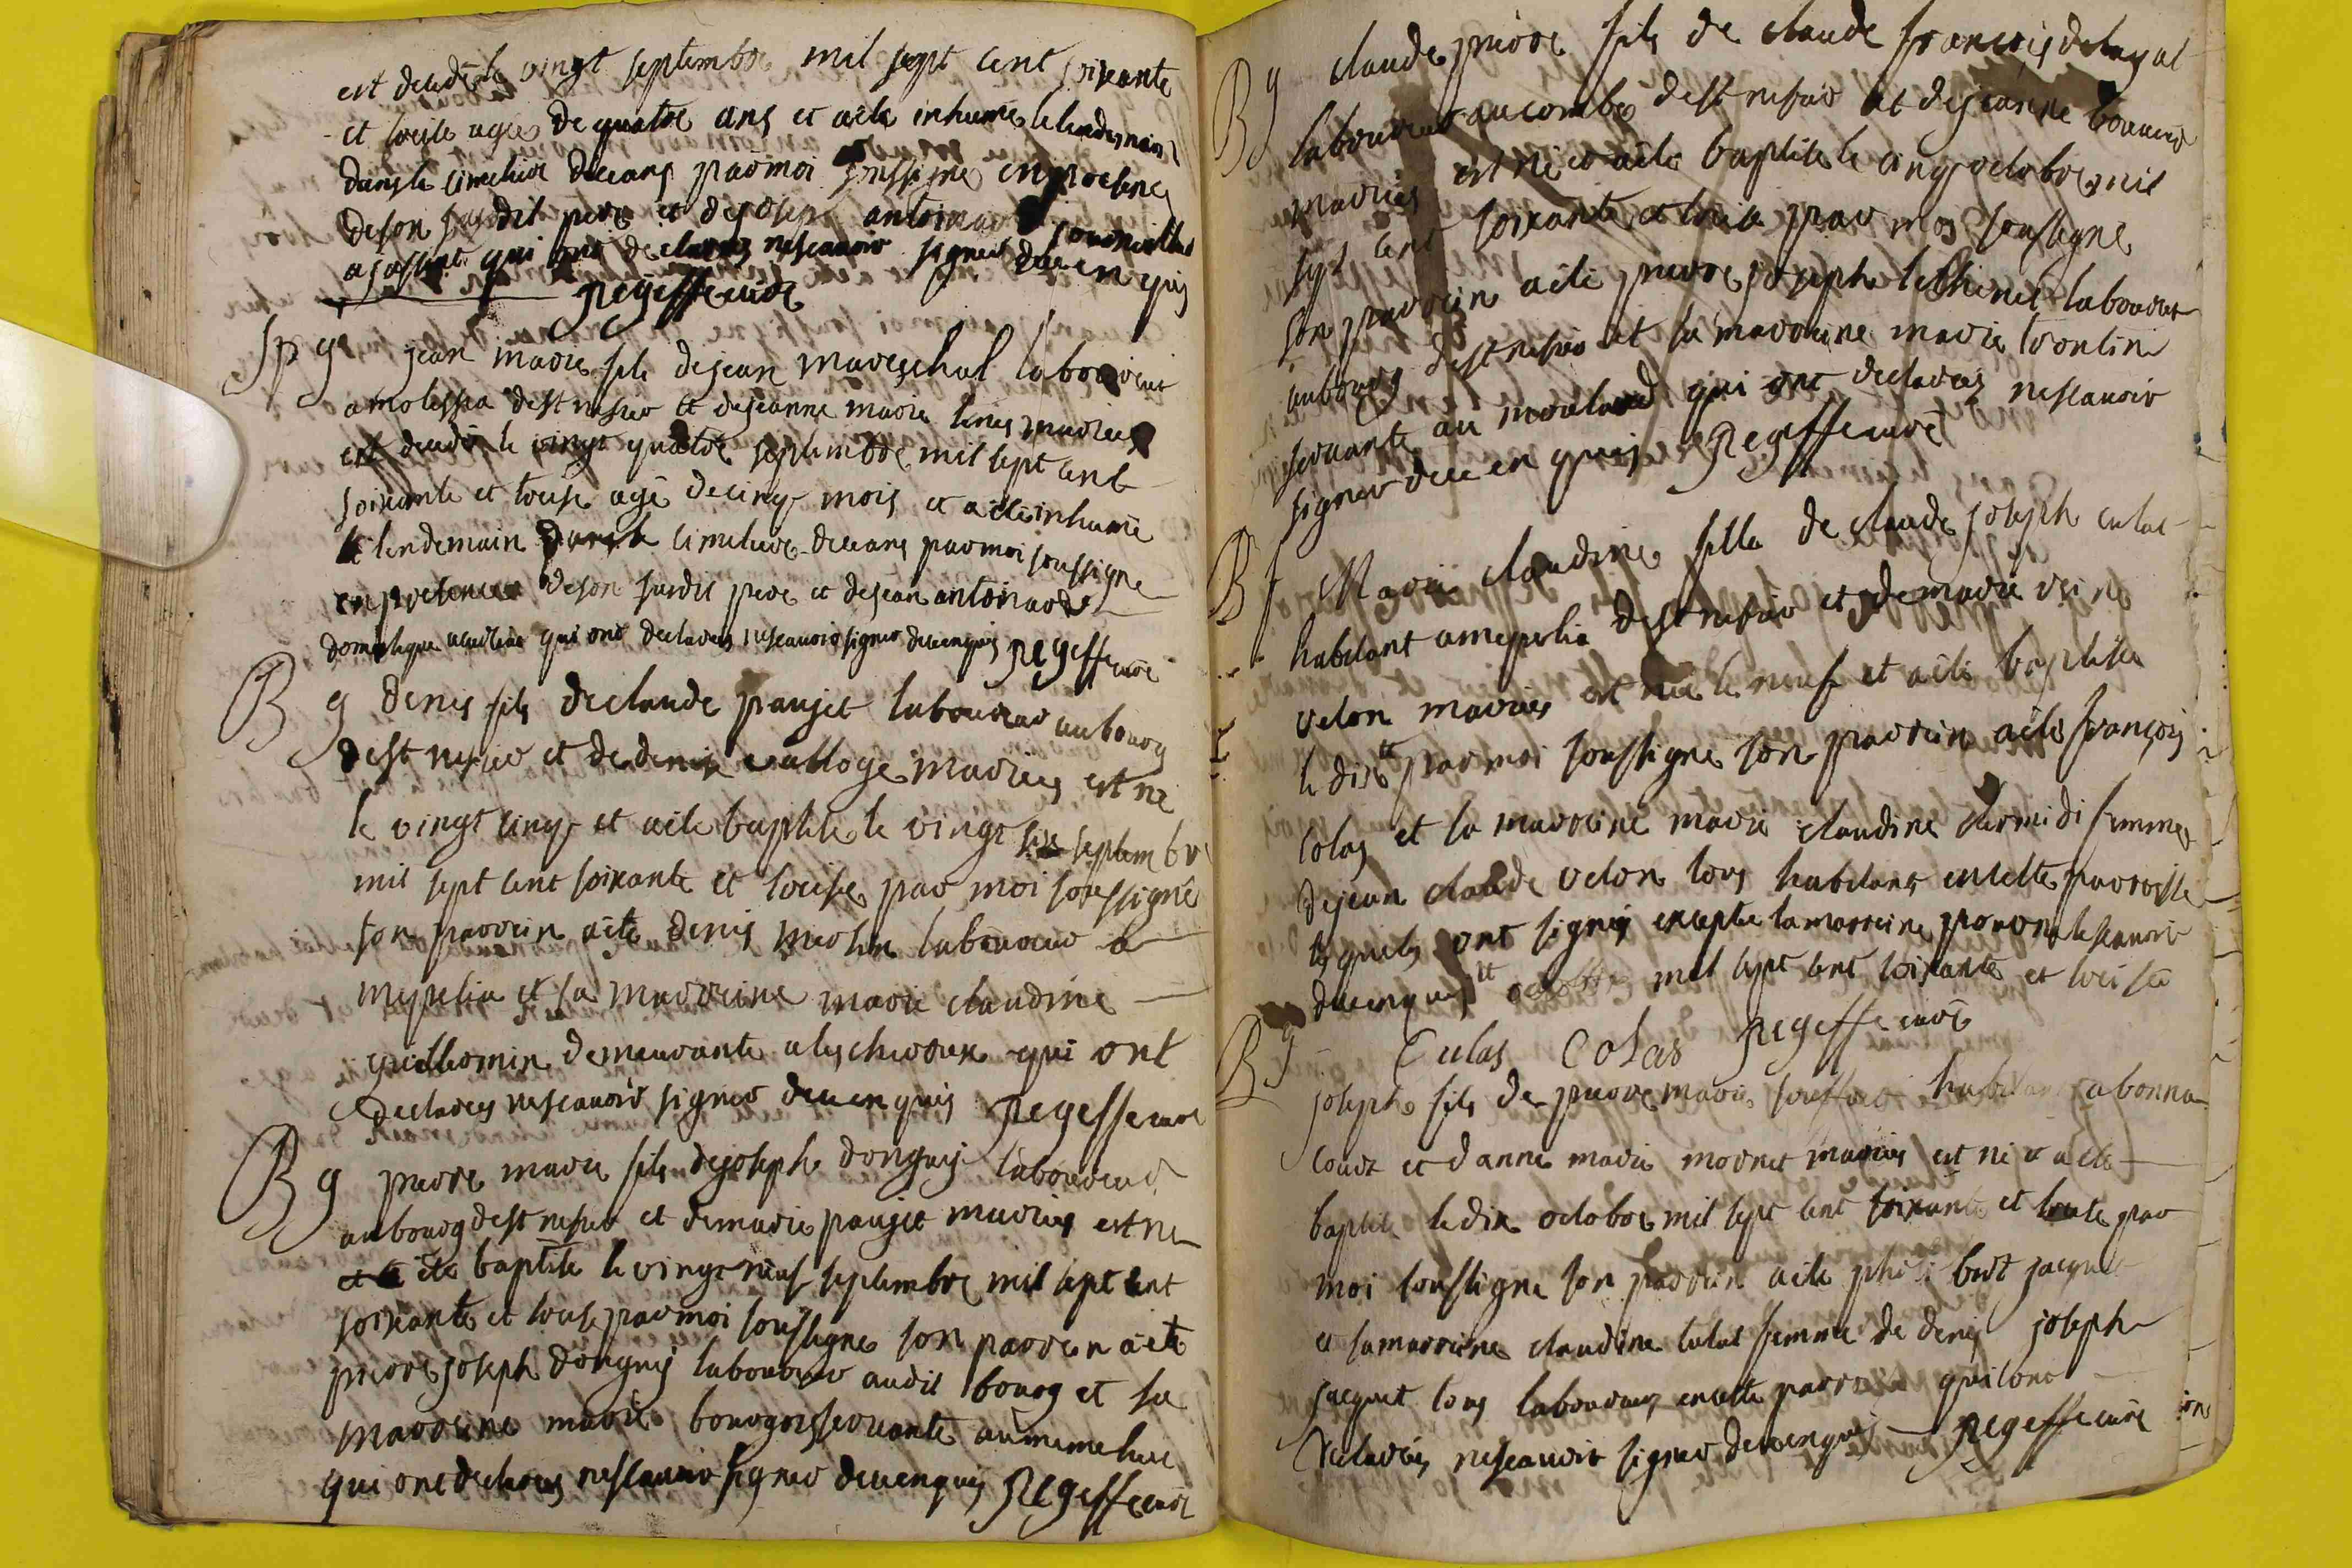 est decedé le vingt septembre mil sept cent soixante
et treise agée de quatre ans et a ete inhumé le lendemain
dans le cimetiere dceans par moi soussigne en presence
de son susdit pere et de joseph antoinar
qui ont declarez ne scauoir signer de ce enquis
pegeffe curé
Sp g jean marie fils de jean mareschal laboureur
a molessia dest nesier et de jeanne marie mariés
est decedé le vingt quatre septembre mil sept cent
soixante et treise agé de cinq mois et a ete inhumé
le lendemain dans le cimetiere deceans par moi soussigne
en presence de son susdit pere et de jean antoinard
domestique qui ont declarez ne scauoir signer de ce enquis pegeffe curé
B g denis fils de claude paujet laboureur au bourg
dest nesier et de denise mariées est né
le vingt cinq et a ete baptisé le vingt six septembr
mil sept cent soixante et treise par moi soussigné
son parrein a ete denis laboureur a
mepelia et sa marreine marie claudine
guillomin demeurante a les chivraux qui ont
declarez ne scauoir signer de ce enquis pegeffe curé
B g pierre marie fils de joseph donguy laboureur
au bourg dest nesier et de marie paujet mariés est né
et a ete baptisé le vingt neuf septembre mil sept cent
soixante et treise par moi soussigne son parrein a ete
pierre joseph donguy laboureur audit bourg et sa
marreine marie bourgois seruante au meme lieu
qui ont declarez ne scauoir signer de ce enquis pegeffe curé
B g claude pierre fils de claude françois
laboureur au combe dest nesier et de jeanne
mariés est né et a ete baptisé le cinq octobre mil
sept cent soixante et treise par moy soussigne
son parrein a ete pierre joseph laboureur
au bourg dest nesier et sa marraine marie
seruante au qui ont declarez ne scauoir
signer de ce enquis pegeffe curé
B f Marie claudine fille de claude joseph culas
habitant a mepelia dest nesier et de marie reine
velon mariés est née le neuf et a ete baptisée
le dix par moi soussigne son parrein a ete françois
colas et sa marreine marie claudine femme
de jean claude velon tous habitans en cette parroisse
lesquels ont signés excepté la marreine pour ne le scauoir
de ce enquis octobre mil sept cent soixante et treise
Culas Colas pegeffe curé
B g joseph fils de pierre marie habitant a bonna
court et danne marie mornet mariés est né et a ete
baptisé le dix octobre mil sept cent soixante et treise par
moi soussigne son parrein a ete jacquet
et sa marreine claudine culas femme de denis joseph
jacquet tous laboureurs en cette parroisse qui ont
declarés ne scauoir signer de ce enquis pegeffe curé